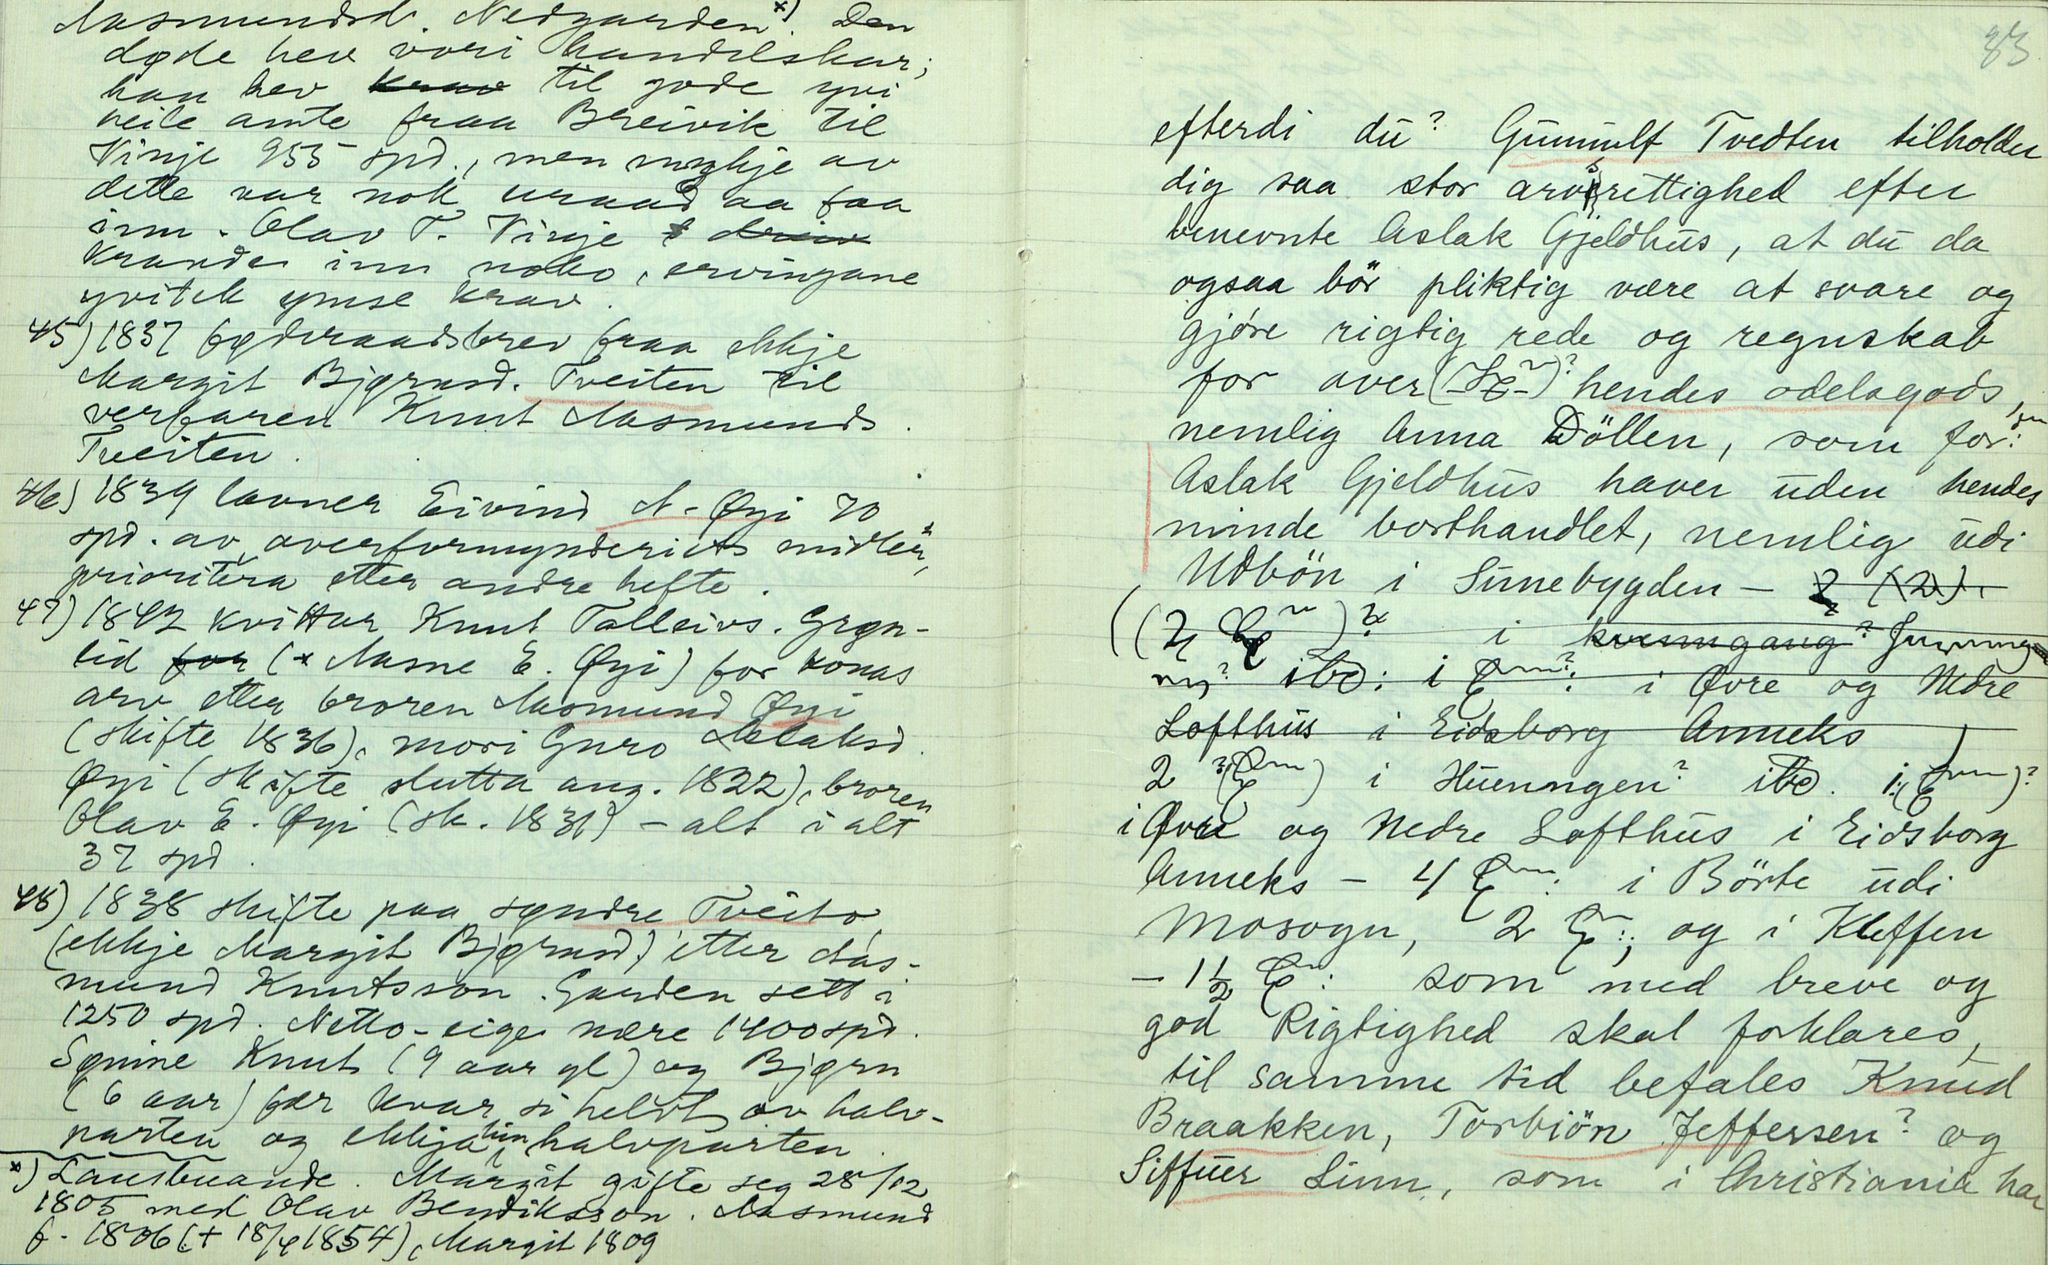 Aasmundsd. Nedgarden x). Den
døde hev vori handelskar;
han hev krav til gode yvi
heile amte fraa Breivik til
Vinje 955 spd., men mykje av
dette var nok uraad aa faa
inn. Olav T. Vinje
kravde inn noko, ervingane
yvitok ymse krav.
45) 1837 føderaadsbrev fraa ekkje
Margit Bjørnsd. Tveiten til
verfaren Knut Aasmunds.
Tveiten.
46) 1839 laaner Eivind A. Øyi 70
spd. av overformynderiets midler,
prioritera etter andre hefte.
47) 1842 kvittar Knut Talleivs. Grøn-
lid for (x Aasne E. Øyi) for konas
arv etter broren Aasmund Øyi
(skifte 1836), mori Guro Aslaksd.
Øyi (skifte slutta aug. 1822), broren
Olav E. Øyi (sk. 1831) - alt i alt
37 spd.
48) 1838 skifte paa søndre Tveito
(ekkje Margit Bjørnsd.) etter Aas-
mund Knutsson. Garden sett i
1250 spd. Netto-eige nære 1400 spd.
Sønine Knut (9 aar gl) og Bjørn
(6 aar) fær kvar si helvt av halv-
parten og ekkja hin halvparten.
x) Lausbuande. Margit gifte seg 28/12
1805 med Olav Bendiksson. Aasmund
f. 1806 (+ 18/4 1854), Margit 1809
83
efterdi du? Gunnulf Tvedten tilholder
dig saa stor arvsrettighed efter
benevnte Aslak Gjeldhus, at du da
ogsaa bör pliktig være at svare og
gjöre rigtig rede og regnskab
for over ( )? hendes odelsgods,
nemlig Anna Döllen, som for:
Aslak Gjeldhus haver uden hendes
minde borthandlet, nemlig udi
Udbön i Sunebygden - 2 (2).
((2 )? i kvenngang?
ny? ibd: i i Øvre og Nedre
Lofthus i Eidsborg Anneks
2 i Huenngen? ibd. i )?
i Øvre og Nedre Lofthus i Eidsborg
Anneks - 4 i Börte udi
Mosogn, 2 ; og i Kleffen
- 1 1/2 som med breve og
god Rigtighed skal forklares,
til samme tid befales Knud
Braakken, Torbiön Jeffersen? og
Siffuer Sinn, som i Christiania har